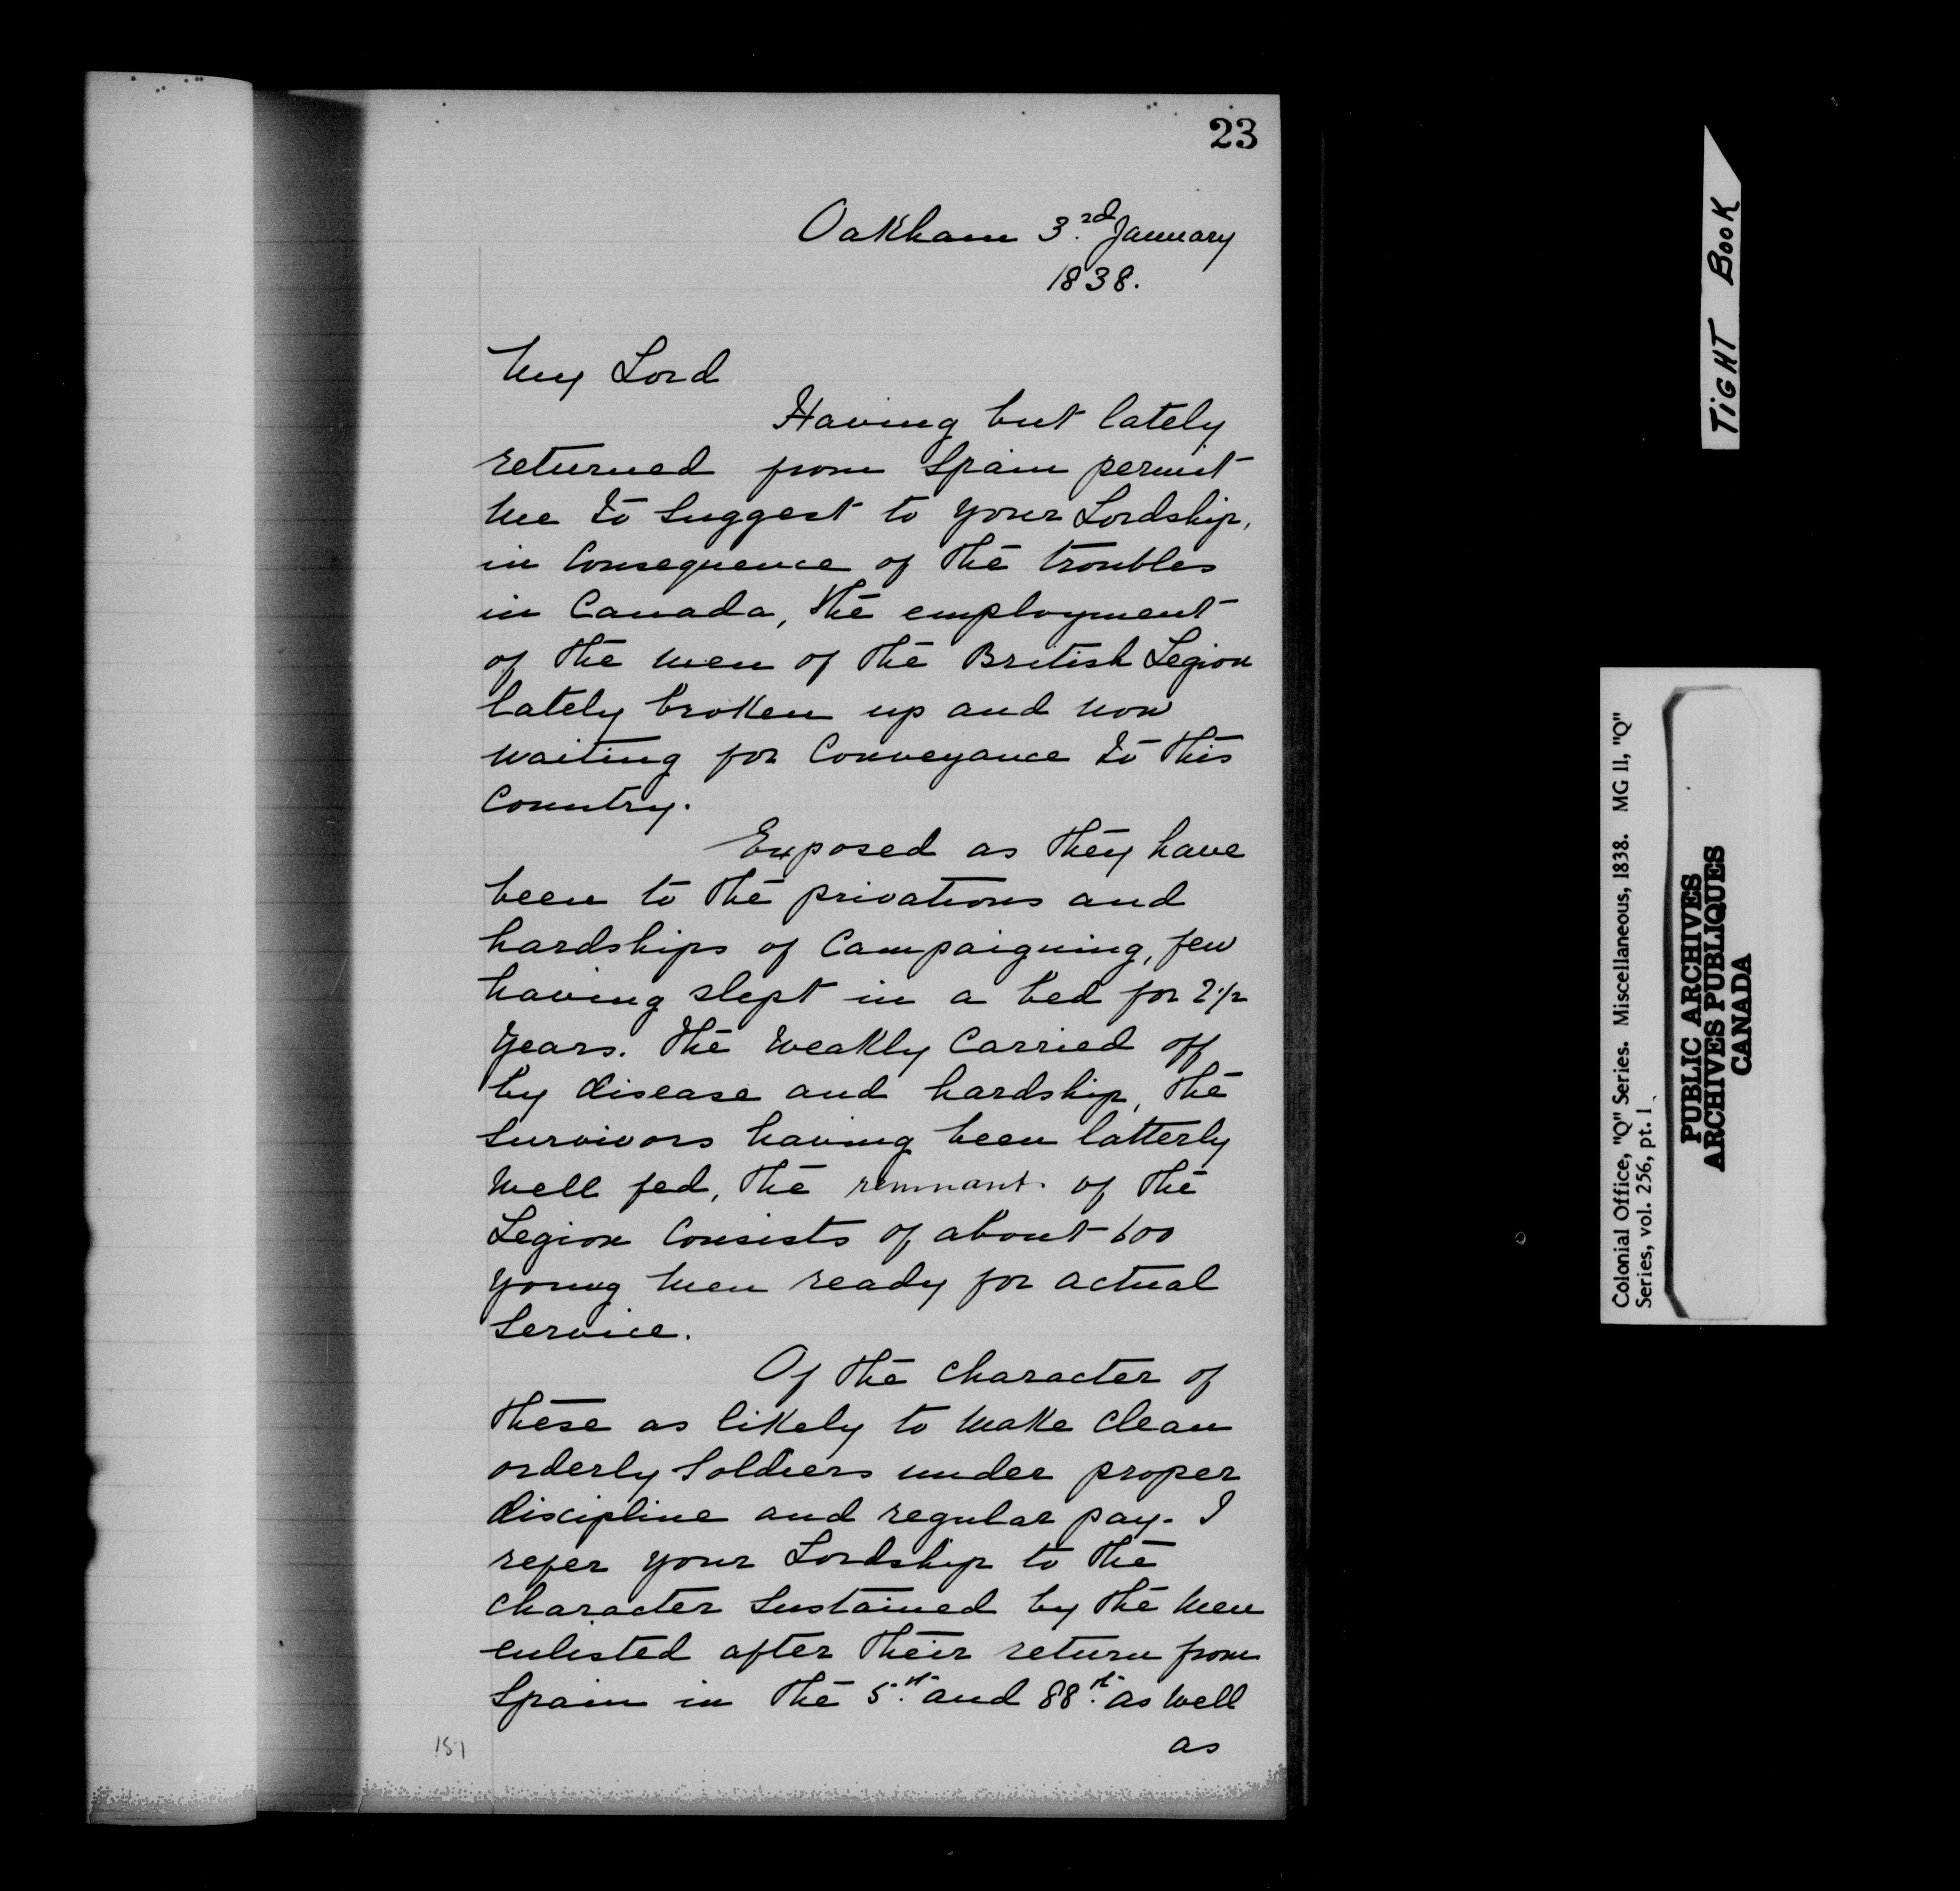 23
Oakham 3rd January
1838.
My Lord
Having but lately
returned from Spain permit
me to suggest to your Lordship,
in Consequence of the troubles
in Canada, the employment
of the men of the British Legion
lately broken up and now
waiting for Conveyance to this
Country.
Exposed as they have
been to the privations and
hardships of Campaigning, few
having slept in a bed for 2 1/2
years. The weakly Carried off
by disease and hardship, the
survivors having been latterly
well fed, the remnant of the
Legion Consists of about 600
young men ready for actual
Service.
Of the Character of
these as likely to make clean
orderly Soldiers under proper
discipline and regular pay. I
refer your Lordship to the
Character sustained by the men
enlisted after their return from
Spain in the 5th and 88th as well
as
151
TIGHT BOOK
Colonial Office, "Q" Series. Miscellaneous, 1838. MG 11, "Q"
Series, vol. 256, pt. 1
PUBLIC ARCHIVES
ARCHIVES PUBLIQUES
CANADA